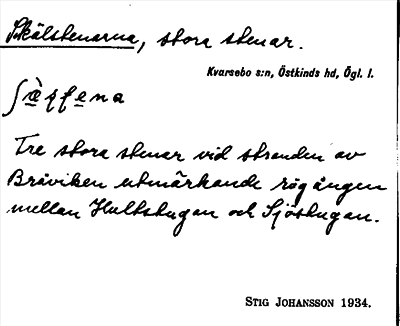 Skälstenarna, stora stenar.
Kvarsebo s:n, Östkinds hd, Ögl. l.
Tre stora stenar vid stranden av
Bråviken utmärkande rågången
mellan Hultstugan och Sjöstugan.
STIG JOHANSSON 1934.